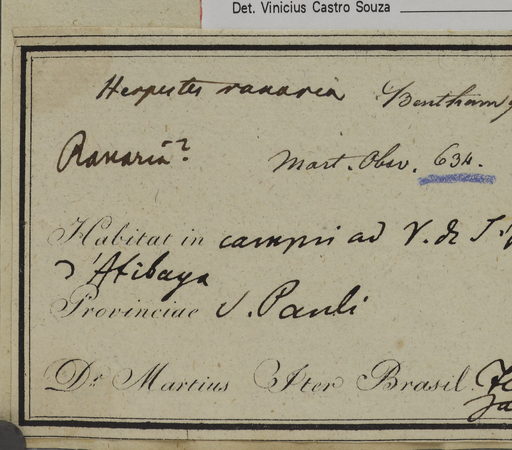 Det. Vinicius Castro Souza
Herpestes ranaria Bentham
Ranaria?
Mart. Obsv. 634.
Habitat in campis ad V. de S.
d'Atibaya
Provinciae S. Pauli
Dr. Martius Iter Brasil.